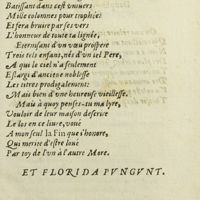 Batissant dans cest vniuers
Mille colomnes pour trophées
Et sera bruire par ses vers
L'honneur de toute ta lignée,
Eternisant d'vn vœu prospere
Trois tels enfans, nés d'vn tel Pere,
A qui le ciel n'a seulement
Eslargi d'ancienne noblesse
Les titres prodigalement:
Mais bien d'vne heureuse vieillesse.
Mais à quoy penses-tu ma lyre,
Vouloir de leur maison descrire
Le los en ce liure, voüé
A mon seul la Fin que i'honore,
Qui merite d'estre loué
Par toy de l'vn à l'autre More.
ET FLORIDA PVNGVNT.